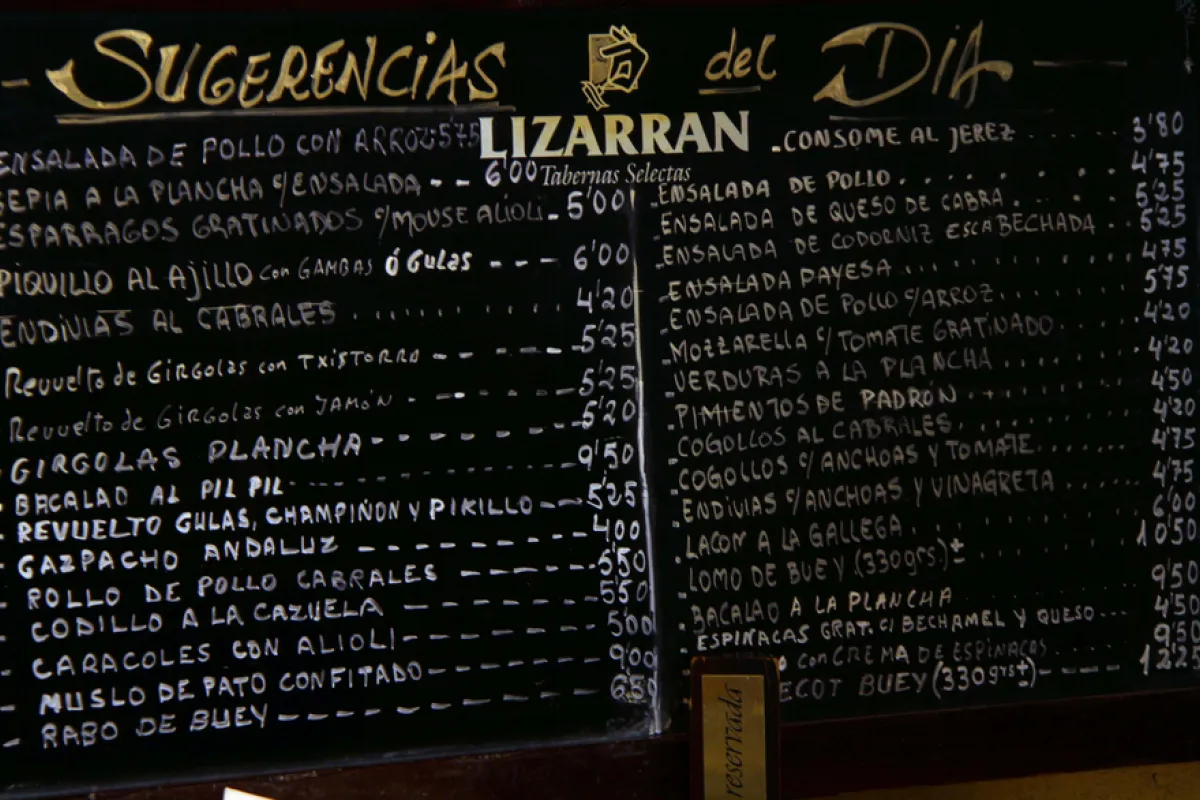 SUGERENCIAS del DIA
LIZARRAN
Tabernas Selectas
ENSALADA DE POLLO CON ARROZ 5'75
SEPIA A LA PLANCHA C/ENSALADA -- 6'00
ESPARRAGOS GRATINADOS C/MOUSE ALIOLI - 5'00
PIQUILLO AL AJILLO con GAMBAS ó GULAS --- 6'00
ENDIVIAS AL CABRALES ........ 4'20
Revuelto de GIRGOLAS con TXISTORRA ----- 5'25
Revuelto de GIRGOLAS con JAMÓN ------ 5'25
GIRGOLAS PLANCHA --------- 5'20
- BACALAO AL PIL PIL ------------ 9'50
- REVUELTO GULAS, CHAMPIÑON Y PIKILLO --- 5'25
- GAZPACHO ANDALUZ --------- 4'00
- ROLLO DE POLLO CABRALES ------ 5'50
- CODILLO A LA CAZUELA -------- 5'50
- CARACOLES CON ALIOLI -------- 5'00
- MUSLO DE PATO CONFITADO ------- 9'00
- RABO DE BUEY ------------ 6'50
- CONSOME AL JEREZ ....... 3'80
- ENSALADA DE POLLO ........ 4'75
- ENSALADA DE QUESO DE CABRA ..... 5'25
- ENSALADA DE CODORNIZ ESCABECHADA .. 5'25
- ENSALADA PAYESA ......... 4'75
- ENSALADA DE POLLO C/ARROZ ....... 5'75
- MOZZARELLA C/ TOMATE GRATINADO ..... 4'20
- VERDURAS A LA PLANCHA ....... 4'20
- PIMIENTOS DE PADRÓN ........ 4'50
- COGOLLOS AL CABRALES ........ 4'20
- COGOLLOS C/ANCHOAS Y TOMATE ..... 4'75
- ENDIVIAS C/ANCHOAS Y VINAGRETA .... 4'75
- LACON A LA GALLEGA ......... 6'00
- LOMO DE BUEY (330grs.)± ....... 10'50
- BACALAO A LA PLANCHA 9'50
- ESPINACAS GRAT. C/ BECHAMEL Y QUESO ... 4'50
con CREMA DE ESPINACAS .... 9'50
ECOT BUEY (330grs±) ---- 12'25
reservada